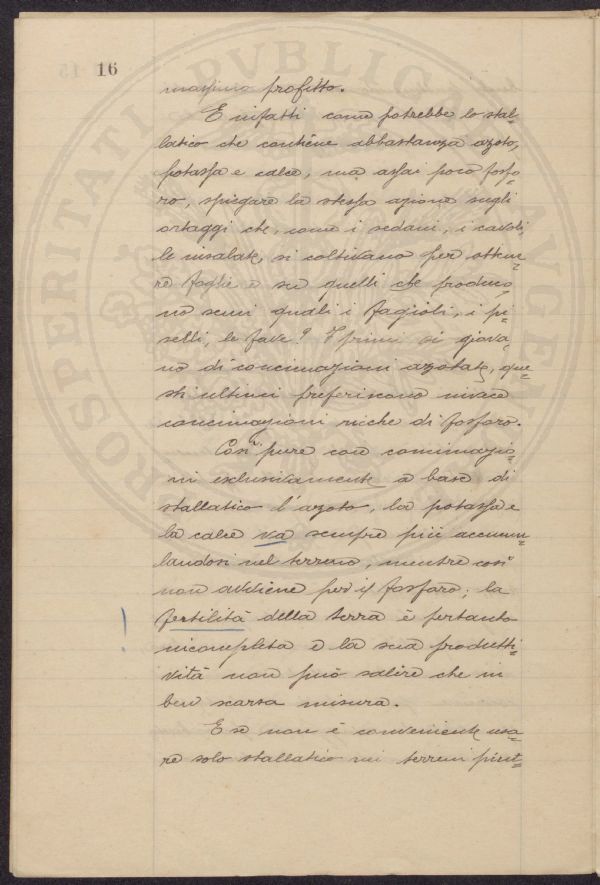 16
massimo profitto.
E infatti come potrebbe lo stal=
latico che contiene abbastanza azoto,
potassa e calce, ma assai poco fosfo=
ro, spiegare la stessa azione sugli
ortaggi che, come i sedani, i cavoli,
le insalate, si coltivano per ottene=
re foglie e su quelli che produco=
no semi quali i fagioli, i pi=
selli, le fave? I primi si giova=
no di concimazioni azotate, que=
sti ultimi preferiscono invece
concimazioni ricche di fosforo.
Così pure con concimazio=
ni esclusivamente a base di
stallatico l'azoto, la potassa e
la calce va sempre più accumu=
landosi nel terreno, mentre così
non avviene per il fosforo; la
fertilità della terra è pertanto
incompleta e la sua produtti=
vità non può salire che in
ben scarsa misura.
E se non è conveniente usa=
re solo stallatico nei terreni piut=
PROSPERITATI PVBLICAE AVGENDAE